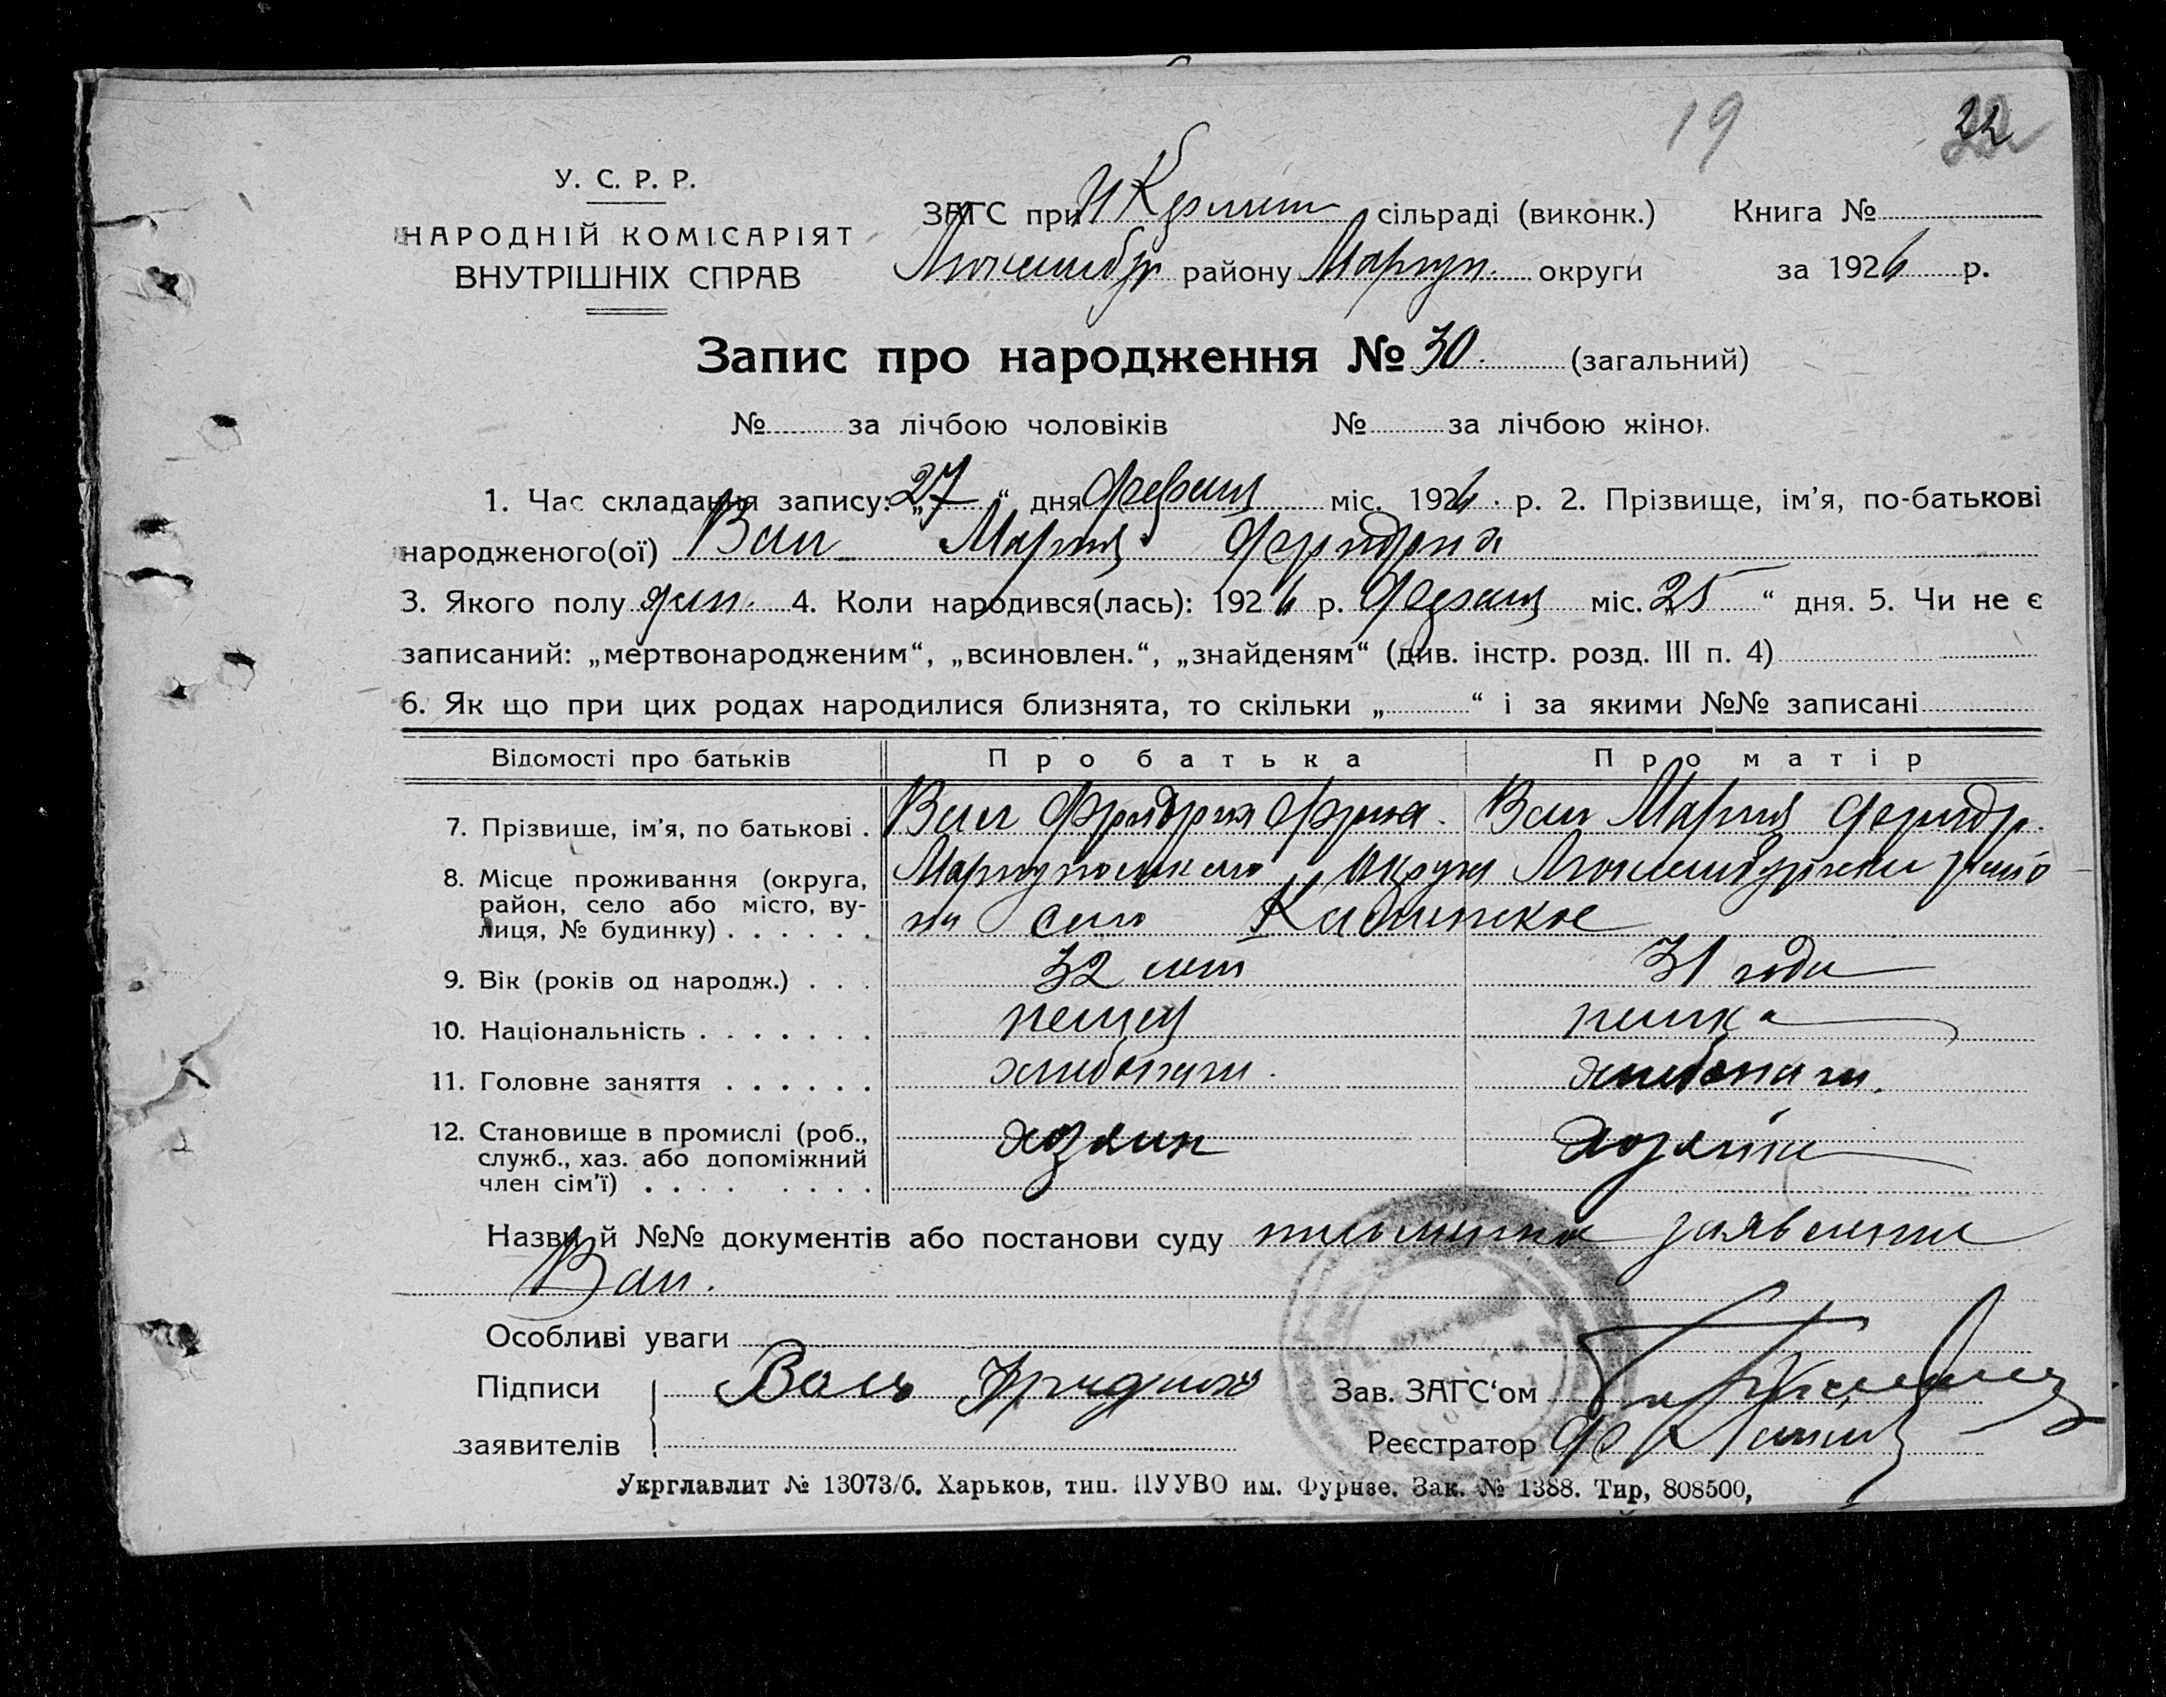 19 32
У. С. Р. Р.
НАРОДНІЙ КОМІСАРІЯТ
ВНУТРІШНІХ СПРАВ
ЗАГС при сільраді (виконк.) Книга №
Люксембур району Мариуп. округи за 1926 р.
Запис про народження № 30. (загальний)
№ за лічбою чоловіків № за лічбою жінок
1. Час складання запису: „27“ дня февраля міс. 1926 р. 2. Прізвище, ім’я, по-батькові
народженого(ої) Вал Мария Фридриха
3. Якого полу жен. 4. Коли народився(лась): 1926 р. февраля міс. 25“ дня. 5. Чи не є
записаний: „мертвонародженим“, „всиновлен.“, „знайденям“ (див. інстр. розд. III п. 4)
6. Як що при цих родах народилися близнята, то скільки „ “ і за якими №№ записані
Відомості про батьків Про батька Про матір
7. Прізвище, ім’я, по батькові . Вал Фридрих Фриха. Вал Мария Фридр.
8. Місце проживання (округа, район, село або місто, вулиця, № будинку) Мариупольского округа Люксембургски райо
на село
9. Вік (років од народж.) . . . 32 лет 31 года
10. Національність . . . . . . . немец немка
11. Головне заняття . . . . . . хлебопаш. хлебопаш.
12. Становище в промислі (роб., служб., хаз. або допоміжний член сім’ї) хозяин хозяйка
Назви й №№ документів або постанови суду письменное заявление
Вал.
Особливі уваги
Підписи
заявителів
Валь Фридрих
Зав. ЗАГС‘ом
Реєстратор
Укрглавлит № 13073/б. Харьков, тип. ПУУВО им. Фурнзе. Зак. № 1388. Тир, 808500,